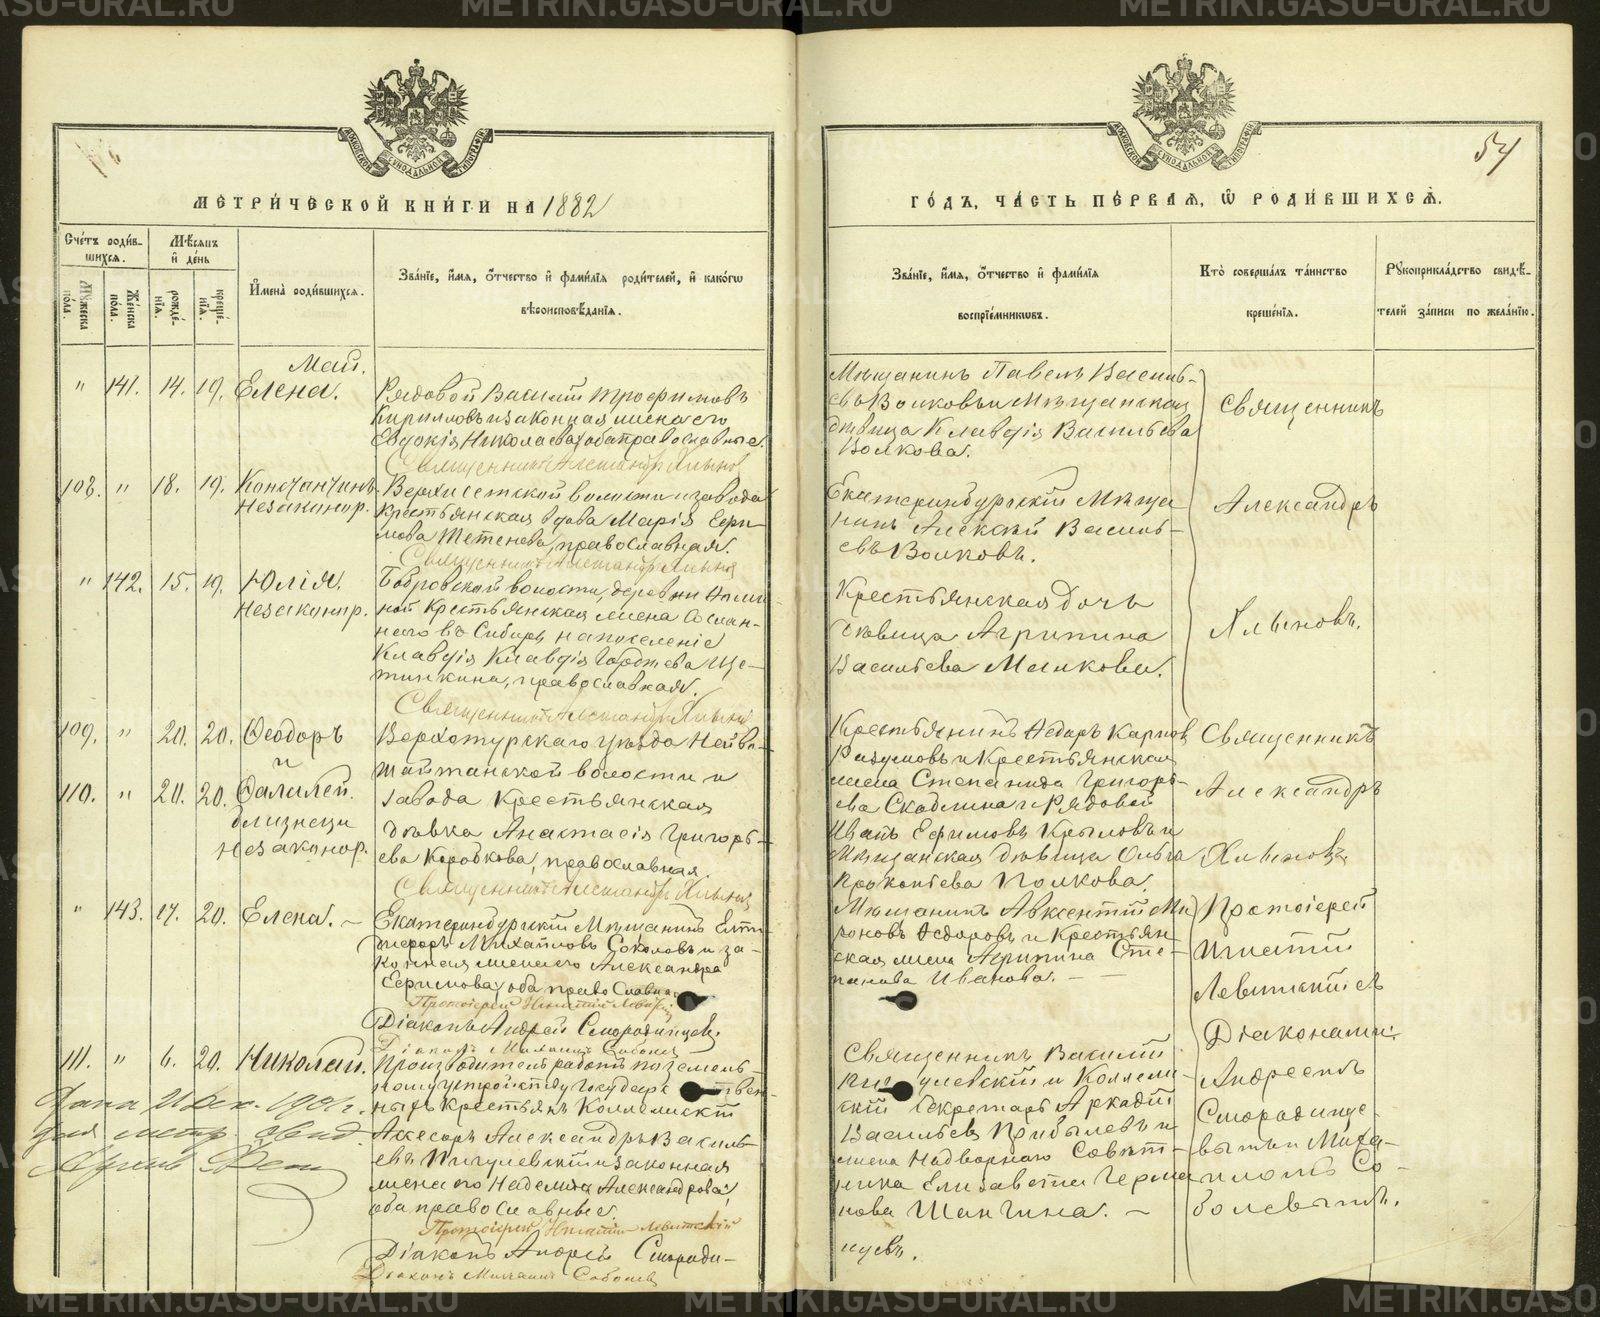 МЕТРИ́ЧЕСКОЙ КНИ́ГИ НА 1882
Сче́тъ роди́в-
шихся.
Мѣ́сяцъ
и҆ де́нь
Мꙋ́жеска
по́ла.
Же́нска
по́ла.
рожде́-
нїѧ.
креще́-
нїѧ.
И҆мена̀ роди́вшихся.
Зва́нїе, и҆́мя, о҆́тчество и҆ фами́лїя роди́телей, и҆ како́гѡ
вѣроисповѣ́данїя.
Май.
" 141. 14. 19. Елена.
Рядовой Василий Трофимовъ
Кирилловъ и законная жена его
Евдокія Николаева, оба православные.
Священникъ Александръ Хлыновъ
108. " 18. 19. Константинъ
Незаконнор.
Верхисетской волости и завода
Крестьянская вдова Марія Ефи-
мова Тетенева, православная.
Священникъ Александръ Хлыновъ
" 142. 15. 19. Юлія.
Незаконнор.
Бобровской волости, деревни
ной Крестьянская жена Сослан-
наго въ Сибирь на поселеніе
Клавдія Клавдія Гордѣева Ще-
тинкина, православная.
Священникъ Александръ Хлыновъ
109. " 20. 20. Ѳеодоръ
и
110. " 20. 20. Фалалей.
близнецы
незаконнор.
Верхотурскаго уѣзда Нейво-
Шайтанской волости и
завода Крестьянская
дѣвка Анастасія Григорь-
ева Коробкова, православная.
Священникъ Александръ Хлыновъ
" 143. 17. 20. Елена. –
Екатеринбургскій Мѣщанинъ Елпи-
дифоръ Михайловъ Соколовъ и за-
конная жена его Александра
Ефимова, оба православные
Протоіерей Игнатій Левитскій
Діаконъ Андрей Смородинцевъ.
Діаконъ Михаилъ Соболевъ
111. " 6. 20. Николай.
Производитель работъ по земель-
ному устройству государственныхъ
крестьянъ Коллежскій
Ассесоръ Александръ Василь-
евъ Пигулевскій и законная
жена его Надежда Александрова,
оба православные.
Протоіерей Игнатій Левитскій
Діаконъ Андрей Смороди-
Діаконъ Михаилъ Соболевъ
21 Дек. 1901 г.
метр. свид.
54
ГО́ДЪ, ЧА́СТЬ ПЕ́РВАЯ, Ѡ҆ РОДИ́ВШИХСЯ.
Зва́нїе, и҆́мя, о҆́тчество и҆ фами́лїя
воспрїе́мникѡвъ.
Кто̀ соверша́лъ та́инство
креще́нїя.
Рꙋкоприкла́дство свидѣ́-
телей за́писи по жела́нїю.
Мѣщанинъ Павелъ Василь-
евъ Волковъ и Мѣщанская
дѣвица Клавдія Васильева
Волкова.
Священникъ
Екатеринбургскій Мѣща
нинъ Алексѣй Василь-
евъ Волковъ.
Александръ
Крестьянская дочь
дѣвица Агрипина
Васильева Малкова.
Хлыновъ.
Крестьянинъ Ѳедоръ Карпов
Разумовъ и Крестьянская
жена Степанида Григорь-
ева Скоблина и Рядовой
Иванъ Ефимовъ Крыловъ и
Мѣщанская дѣвица Ольга
Прокопьева Полкова.
Священникъ
Александръ
Хлыновъ
Мѣщанинъ Авксентій Ми
роновъ Ѳедоровъ и Крестьян-
ская жена Агрипина Сте-
панова Иванова. –
Протоіерей
Игнатій
Левитскій съ
Діаконами:
Священникъ Василій
Пигулевскій и Коллеж-
скій Секретарь Аркадій
Васильевъ Прибылевъ и
жена Надворнаго Совѣт-
ника Елизавета Герма
нова Шангина. –
нцевъ.
Андреемъ
Смородинце-
вымъ и Миха-
иломъ Со-
болевымъ.
METRIKI.GASU-URAL.RU